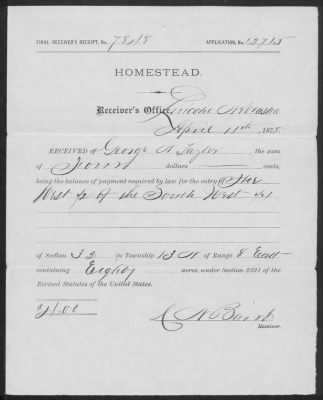 FINAL RECEIVER'S RECEIPT, No. 7818 APPLICATION, No. 12715
HOMESTEAD.
Receiver's Office, Lincoln Nebraska
April 11th, 1878.
RECEIVED of George N Taylor the sum
of Four dollars cents,
being the balance of payment required by law for the entry of The
West ½ of the South West ¼
of Section 32 in Township 13 N of Range 8 East
containing Eighty acres, under Section 2291 of the
Revised Statutes of the United States.
$4.00
Receiver.